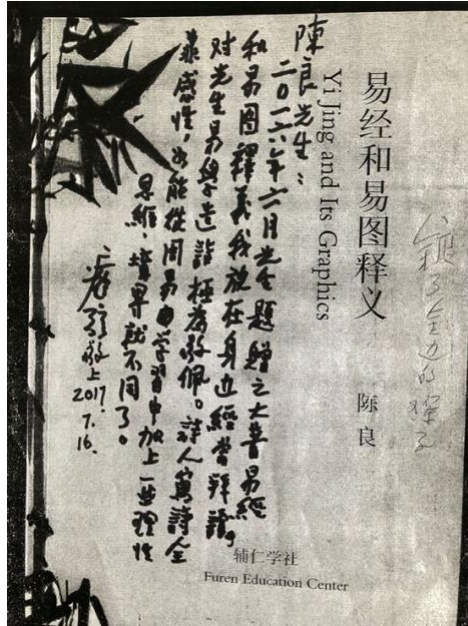 易经和易图释义
Yi Jing and Its Graphics
陈良
陳良先生：
二〇一六年六月先生題贈之大書易經
和易图釋義我放在身边經常拜讀。
对先生易學造詣極為敬佩。詩人寫詩全
靠感性，如能從周易的学習中加上一些理性
思維，境界就不同了。
敬上
2017.
7.16.
辅仁学社
Furen Education Center